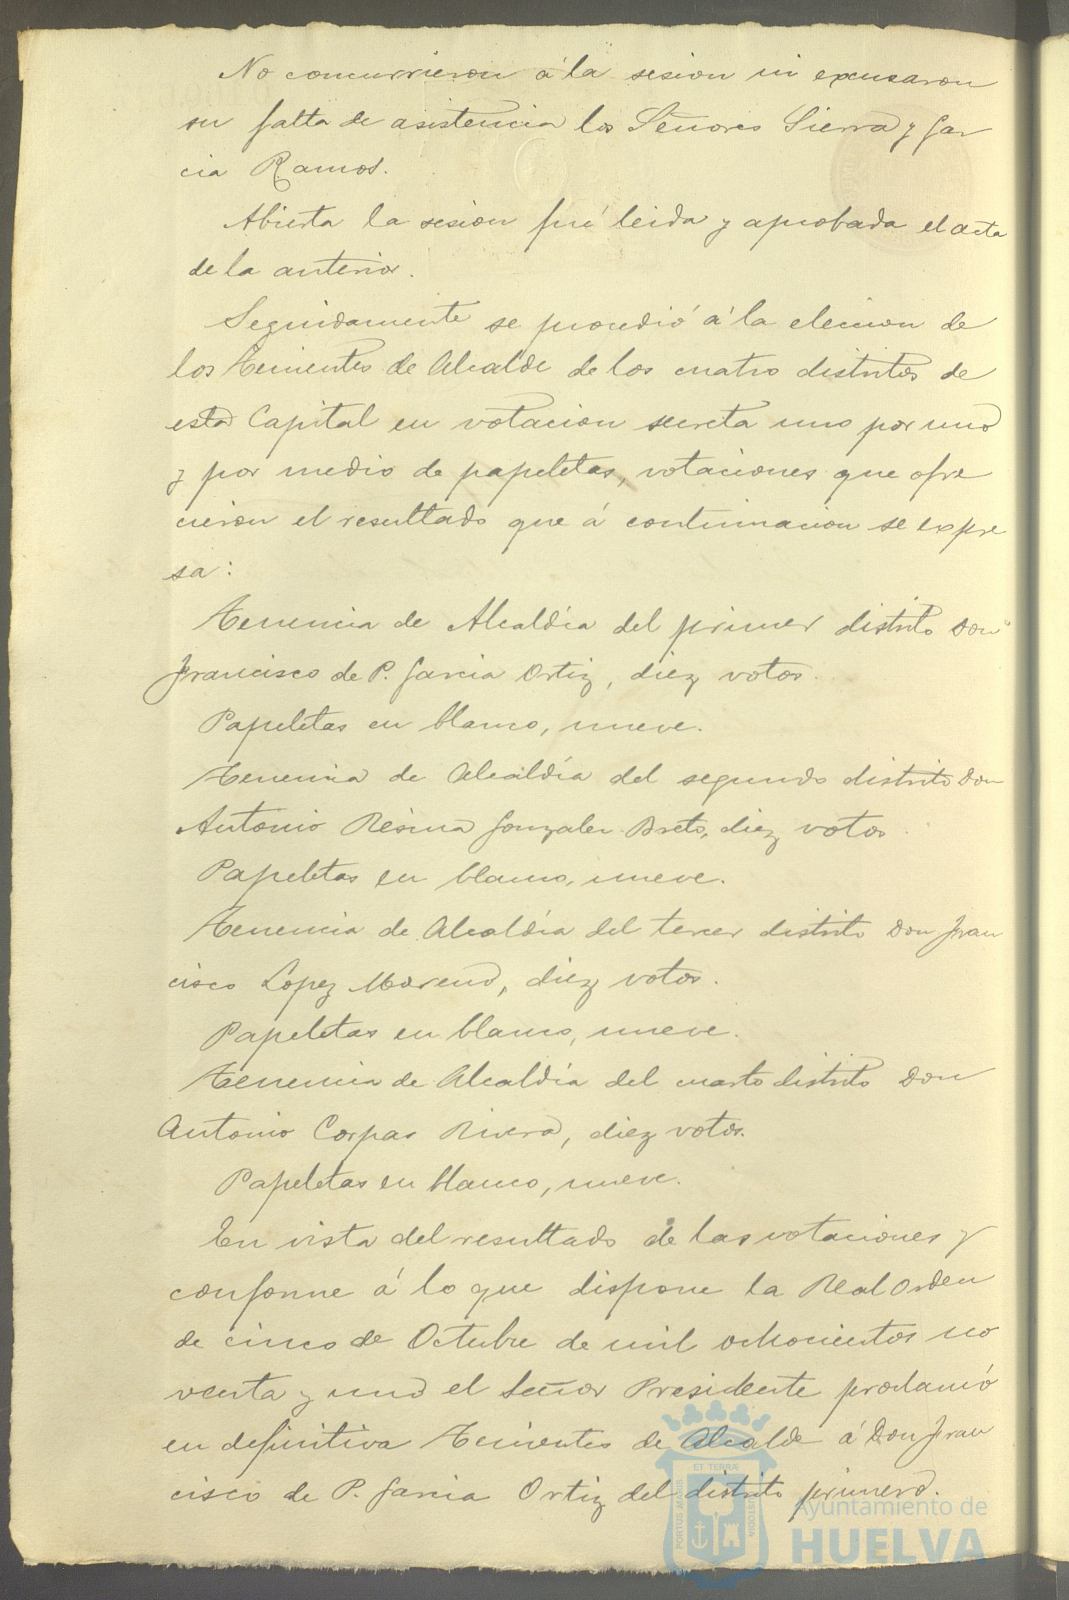 No concurrieron á la sesion ni excusaron
su falta de asistencia los Señores Sierra y Gar
cia Ramos.
Abierta la sesion fué leida y aprobada el acta
de la anterior.
Seguidamente se procedió á la eleccion de
los Tenientes de Alcalde de los cuatro distritos de
esta Capital en votacion secreta uno por uno
y por medio de papeletas, votaciones que ofre
cieron el resultado que á continuacion se expre
sa:
Tenencia de Alcaldía del primer distrito Don
Francisco de P. Garcia Ortiz, diez votos.
Papeletas en blanco, nueve.
Tenencia de Alcaldía del segundo distrito Don
Antonio Gonzalez diez votos.
Papeletas en blanco, nueve.
Tenencia de Alcaldía del tercer distrito Don Fran
cisco Lopez Moreno, diez votos.
Papeletas en blanco, nueve.
Tenencia de Alcaldía del cuarto distrito Don
Antonio Corpas Rivera, diez votos.
Papeletas en blanco, nueve.
En vista del resultado de las votaciones y
conforme á lo que dispone la Real Orden
de cinco de Octubre de mil ochocientos no
venta y uno el Señor Presidente proclamó
en definitiva Tenientes de Alcalde á Don Fran
cisco de P. Garcia Ortiz del distrito primero.
ET TERRÆ
PORTUS MARIS
CUSTODIA
Ayuntamiento de
HUELVA